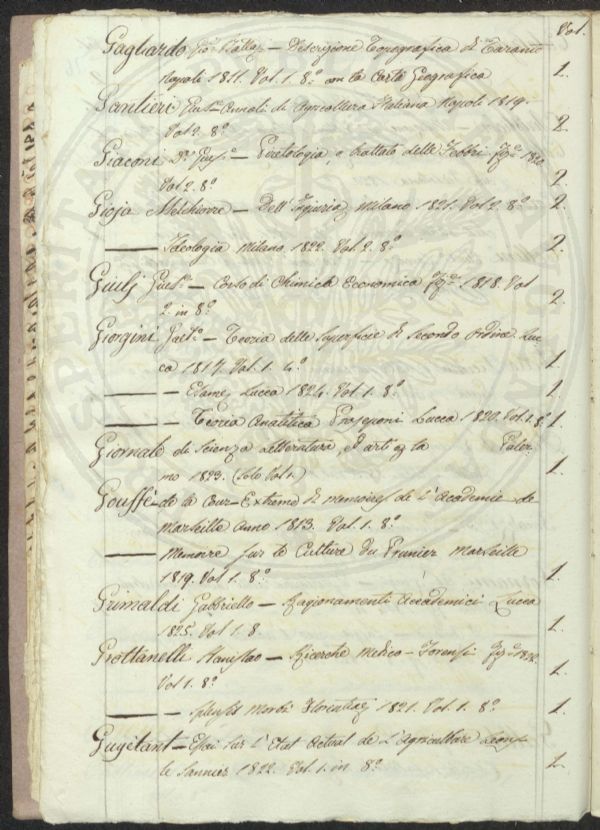 Vol.
Gagliardo Gio: Batta - Descrizione Topografica di Taranto
Napoli 1811. Vol. 1. 8.° con la Carta Geografica 1.
Gantieri Annali di Agricoltura Italiana Napoli 1819.
Vol 2. 8.° 2.
Giaconi D.r Gius.e - Piretologia, o trattato delle Febbri 1820
Vol 2. 8.° 2.
Gioja Melchiorre - Dell' Ingiuria Milano 1821. Vol 2. 8.° 2.
——— Ideologia Milano 1822. Vol 2. 8.° 2.
Giulj Gius.e - Corso di Chimica Economica 1818. Vol
2 in 8.° 2.
Giorgini Gaet.o - Teoria delle Superficie di Secondo Ordine Luc-
ca 1817. Vol. 1. 4.° 1.
——— - Lucca 1824. Vol 1. 8.° 1.
——— - Teoria Analitica Lucca 1820. Vol. 1. 8.° 1.
Giornale di Scienza Letteratura, ed arti Paler
mo 1823. (Solo Vol 1.) 1.
Gouffé de la Cour - Extrait de memoires de L'Academie de
Marseille anno 1813. Vol 1. 8.°
——— Memoire sur le Culture du Prunier Marseille
1819. Vol 1. 8.° 1.
Grimaldi Gabbriello - Ragionamenti Accademici Lucca
1825. Vol 1. 8. 1.
Grottanelli Stanislao - Ricerche Medico - Forensi
Vol 1. 8.° 1.
——— - Morbi Florentiae 1821. Vol. 1. 8.° 1.
Guyétant - Essai sur L'Etat Actuel de L'Agriculture
le Saunier 1822. Vol. 1. in 8.° 1.